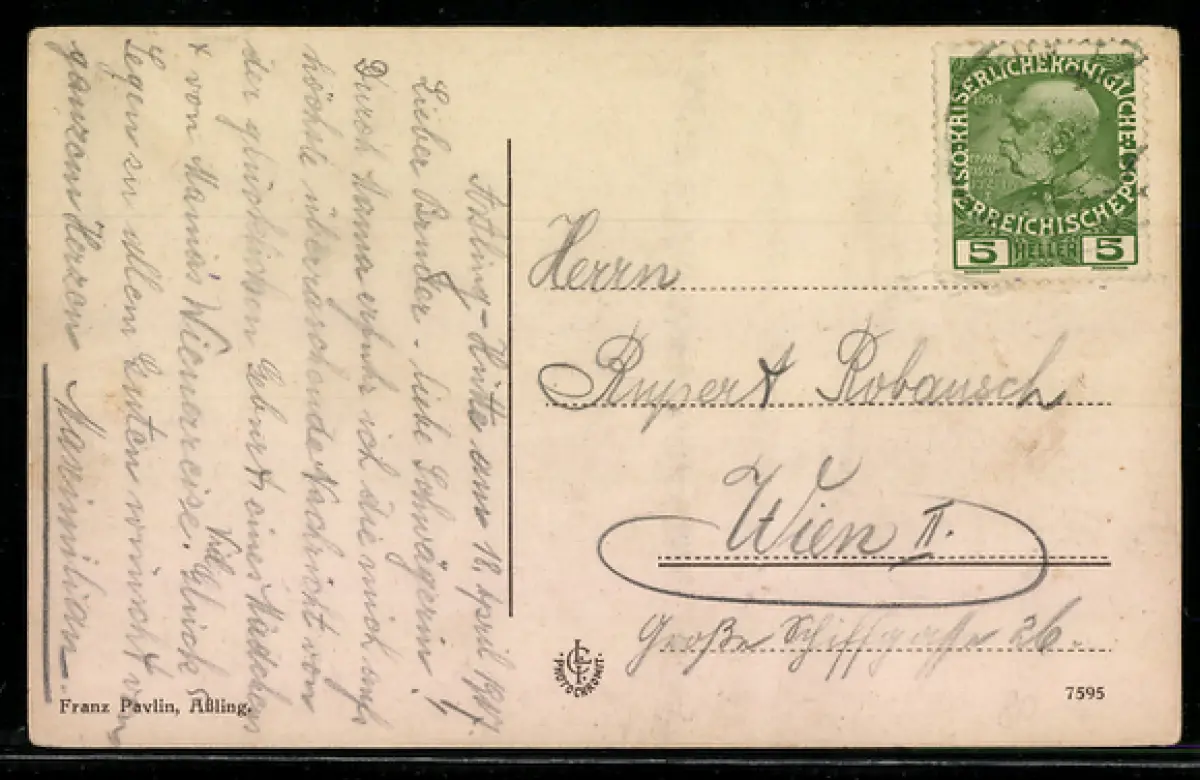 Aßling-Hütte am 12. April 1917.
Lieber Bruder - liebe Schwägerin!
Durch Nanna erfuhr ich die mich aufs
höchste überraschende Nachricht von
der glücklichen Geburt eines Mädchens
+ von Mamis Wienerreise. Viel Glück
Segen zu allem Guten wünscht von
ganzem Herzen Maximilian.
Franz Pavlin, Aßling.
PHOTOCHROMIE.
KAISERLICHE KÖNIGLICHE
ÖSTERREICHISCHE POST
5 HELLER 5
Herrn
Rupert Robausch
Wien II.
Große Schiffgasse 26.
7595